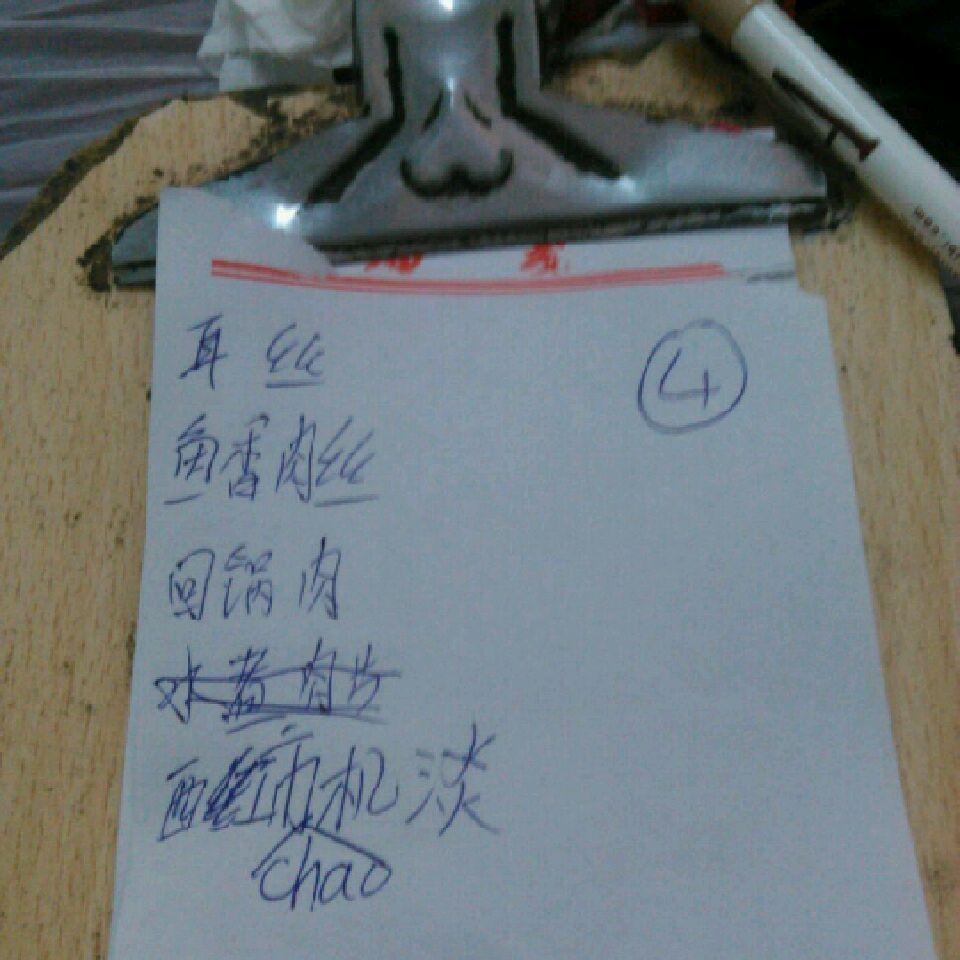 耳丝
④
鱼香肉丝
回锅肉
水煮肉片
西红市机淡
chao